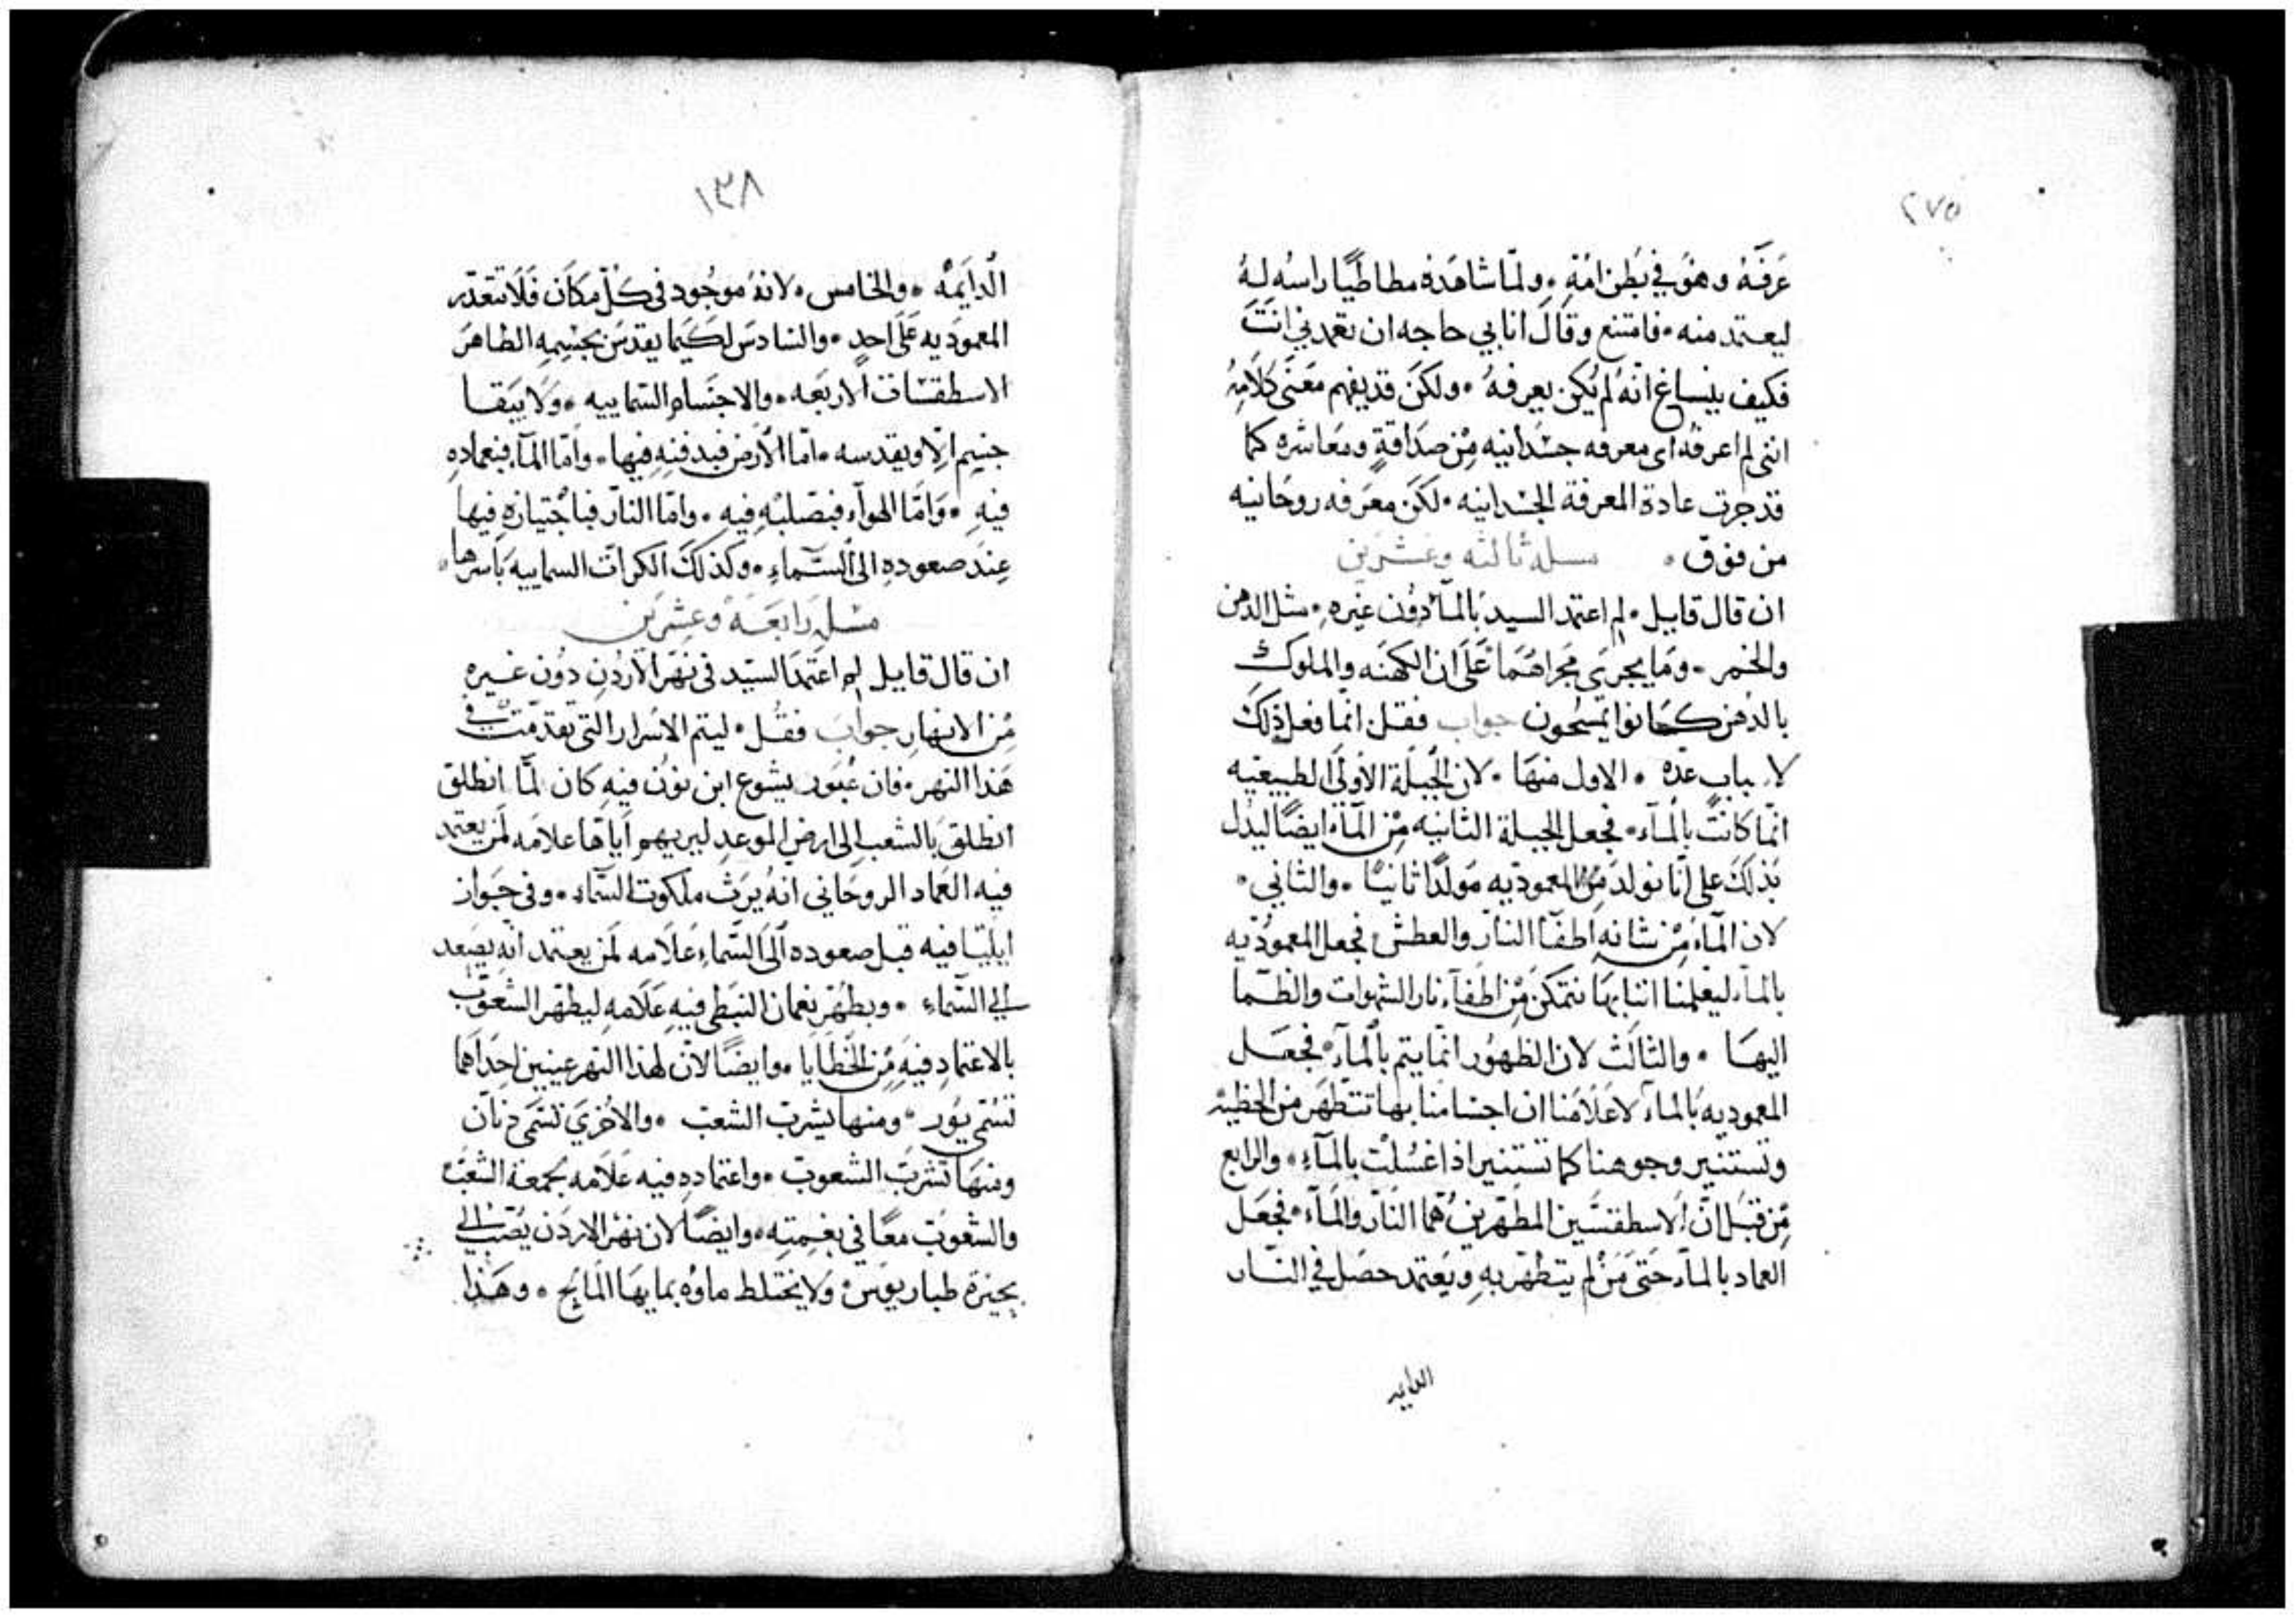 ٢٧٥
عَرفَهُ وهوُ في بَطن امُهِ ۰ ولمّا شاهَدهُ مطاطيًا راسُه لهُ
ليعتمد منه ۰ فامتنع وقالَ انا بي حاجه ان تعمدني انتَ
فكيف ينساغ انّهُ لم يَكن يعرفهُ ۰ ولكنَ قد يفهم معَنى كلَامِهُ
انني لم اعرفهُ اي معرفه جسْدانيه مِن صدَاقةٍ ومعَاشره كما
قد جرت عادة المعرفة الجسْدانيه ۰ لكن معَرفه روحَانيه
من فوق ۰ مسله ثالثه وعشرين
ان قال قايل ۰ لم اعتمد السيد بَالمآ دوُن غيره ۰ مثل الدهن
والخمر ۰ ومَا يجري مَجراهُمَا عَلَى ان الكهنَه والملوك
بالدُهن كَانوا يمسَحون جواب فقل انمّا فعل ذلكَ
لاسباب عدّه ۰ الاول منهَا ۰ لان الجُبلَة الأولَى الطبيعيه
انمّا كانتْ بالمآء ۰ فجعل الجبلة الثانيه مِن المآء ايضًا ليدُل
بَذلكَ على انّا نولد مَن المعموديه مَولدًا ثانيًا ۰ والثاني ۰
لان المآءَ مِن شانه اطفَآ النار والعطش فجعل المعموُديه
بالمآء ليعلمنا اننا بهَا نتمَكن مِن اطفآء نار الشهوات والظمَا
اليهَا ۰ والثالَث لان الطهوُر انمّا يتم بالمآء ۰ فجعَل
المعموديه بَالمآء لاعَلَامَنا ان اجسَامنا بها تتطهَر من الخطيه
وتستنير وجوهنا كما تستِنير اذا غسُلت بالمآءِ ۰ والرابع
مِن قبَل انّ الاسطقسَين المطهّرين هُما النَار والمآء ۰ فجعَل
العماد بالمآء حَتى مَن لم يتطهّر بهِ ويَعتمد حصَل في النّار
الدايمه
١٣٨
الدايَمة ۰ والخامس ۰ لانهُ موجُود في كلّ مكَان فَلَا تتعذّر
المعموَديه عَلَى احدٍ ۰ والسَادسَ لكَيما يقدسَ بجسْمِه الطاهرَ
الاسطقسَات الاربَعه ۰ والاجسَام السَماييه ۰ وَلَا يَبقا
جسِم الّا ويقدسه ۰ امّا الأرض فبدفنِه فيها ۰ وامّا المآ فبعمادهِ
فيهِ ۰ وَامّا الهوآء فبصَلبْه فيه ۰ وامّا النار فباجْتيازهِ فيها
عِندَ صعودهِ الى السَمآءِ ۰ وكذلكَ الكراتَ السماييه بَاسرها ۰
مسَله رَابعَة وعشرين
ان قال قايل لم اعتمَد السيّد في نهَر الأردُن دُون غيره
مِن الانهار جوابَ فقُل ۰ ليتم الاسُرار التي تقدمّت في
هَذا النهر ۰ فان عُبَور يشوع ابن نونُ فيه كان لمّا انطلق
انطلقَ بَالشعب الى ارض الموعدِ ليريهم اياها علامَه لمَن يعتمد
فيه العَماد الروحَاني انهُ يَرث ملكوت السَماء ۰ وفي جوَاز
ايليَا فيه قبل صعوده الَى السَماء عَلَامه لَمن يعتمد انّه يصَعد
الي السَماء ۰ وبطهُر نعمان النبَطي فيهِ عَلَامهِ ليطهّر الشعوّب
بالاعتمادِ فيَهِ مِن الخطَايا ۰ وايضًا لانّ لهذا النهر عينيين احدَاهما
تسُمى يوُر ۰ ومنها يشربَ الشعبَ ۰ والأخري تسَمَى دنآن
ومنهَا تشربَ الشعوبَ ۰ واعتماده فيه عَلَامه لجمعة الشعَب
والشعوبَ معًا في بغَيِتِه ۰ وايضًا لان نهْر الاردَن يُصَب الي
بحيَرة طباريوس ۰ وَلا يختَلط ماوُه بمايهَا المَالح ۰ وهَذا